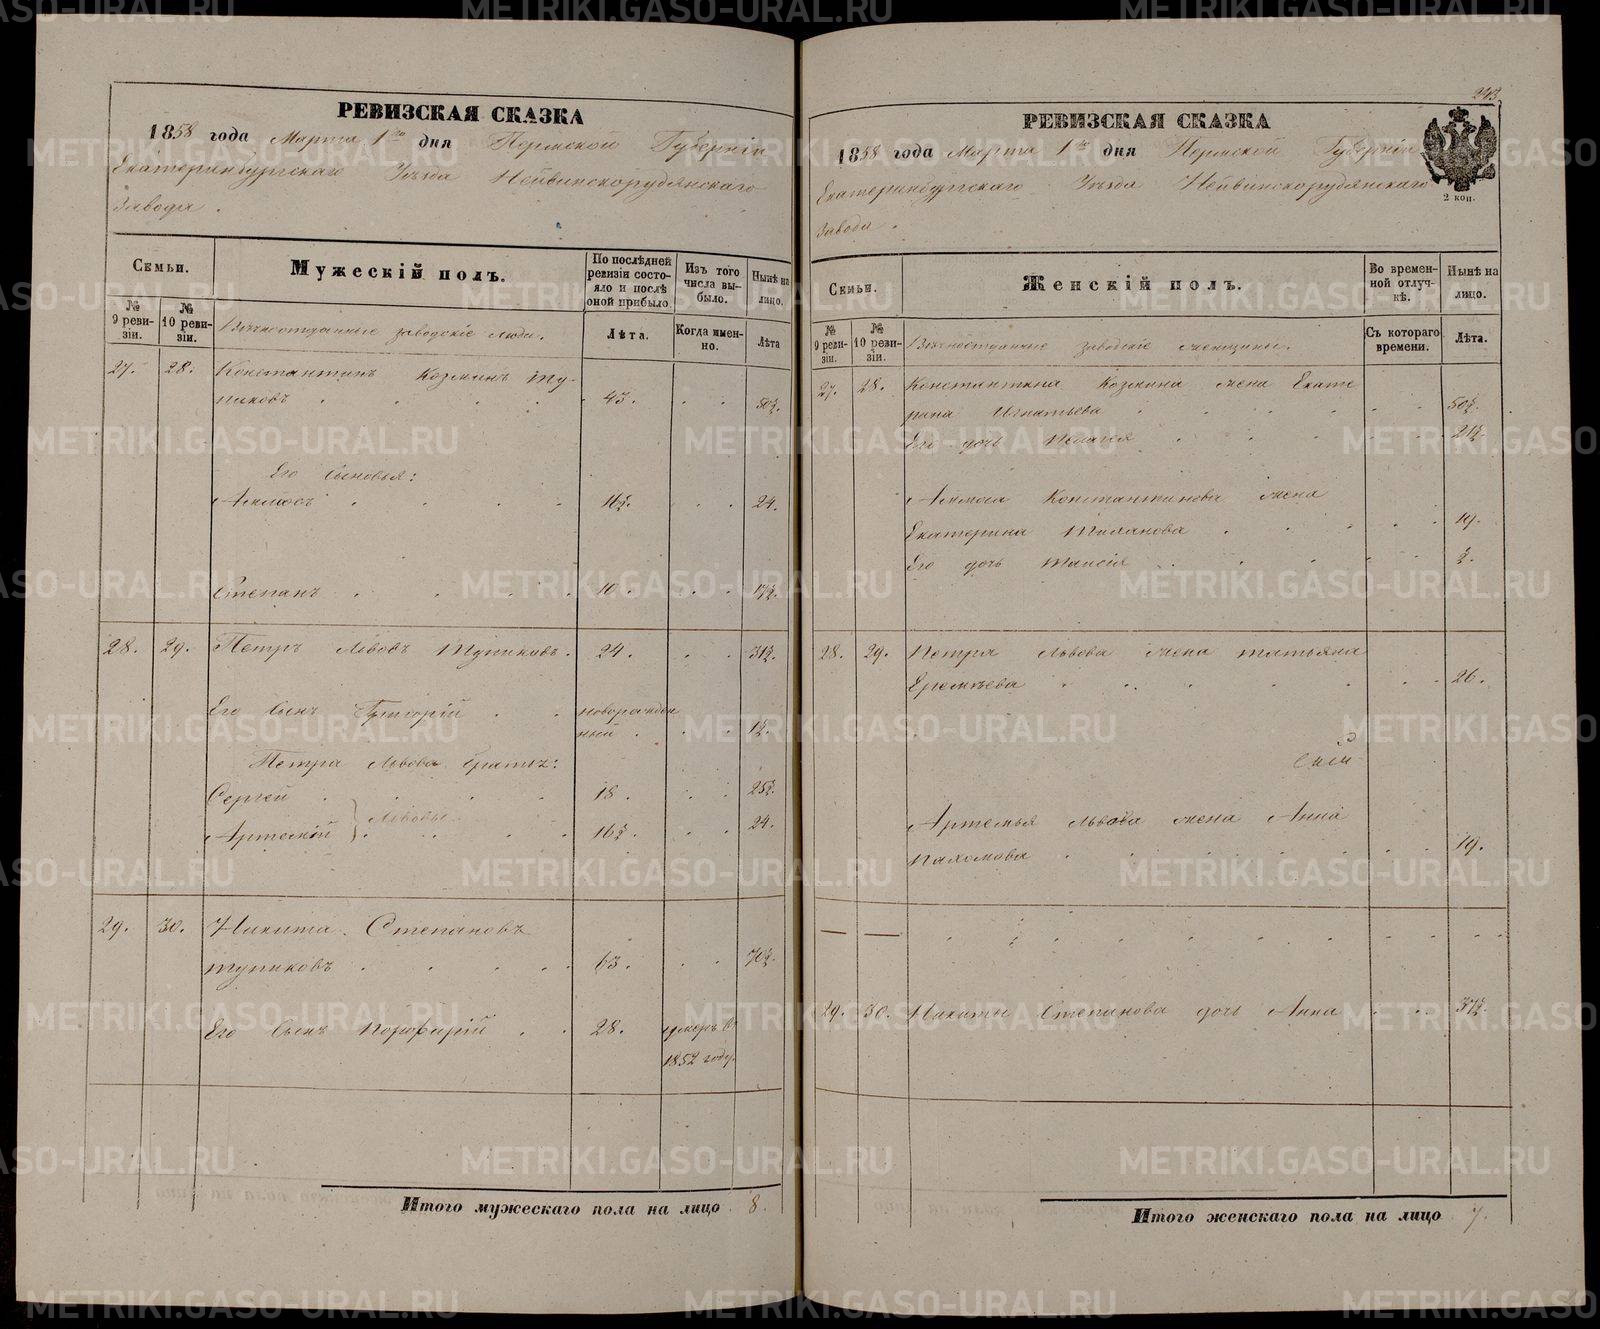 РЕВИЗСКАЯ СКАЗКА
1858 года Марта 1го дня Пермской Губерніи
Екатеринбургскаго Уѣзда Нейвинскорудянскаго
Завода.
Семьи.
Мужескій полъ.
По послѣдней ревизіи состояло и послѣ оной прибыло.
Изъ того числа выбыло.
Нынѣ на лицо.
№ 9 ревизіи.
№ 10 ревизіи.
заводскіе люди.
Лѣта.
Когда именно.
Лѣта
27. 28. Константинъ Козминъ Ту-
пиковъ 43. 50½.
Его сыновья:
16½. 24.
Степанъ 10. 17½.
28. 29. Петръ Львовъ Тупиковъ. 24. 31½.
Его сынъ Григорій новорожден
ный 1½.
Петра Львова братья:
Сергей 18. 25½.
Артемій } Львовы 16½. 24.
29. 30. Никита Степановъ
Тупиковъ 63. 70½.
Его сынъ Порфирій 28. умеръ въ
1852 году.
Итого мужескаго пола на лицо 8.
243
РЕВИЗСКАЯ СКАЗКА
1858 года Марта 1го дня Пермской Губерніи
Екатеринбургскаго Уѣзда Нейвинскорудянскаго
Завода.
2 коп.
Семьи.
Женскій полъ.
Во временной отлучкѣ.
Нынѣ на лицо.
№ 9 ревизіи.
№ 10 ревизіи.
заводскіе женщины.
Съ котораго времени.
Лѣта.
27. 28. Константина Козмина жена Екате
рина Игнатьева 50½.
Его дочь Пелагея 21½.
Константинова жена
Екатерина 19.
Его дочь Таисія ½.
28. 29. Петра Львова жена Татьяна
Еремѣева 26.
Артемья Львова жена Анна
Пахомова 19.
29. 30. Никиты Степанова дочь Анна 37½.
Итого женскаго пола на лицо 7.
METRIKI.GASO-URAL.RU